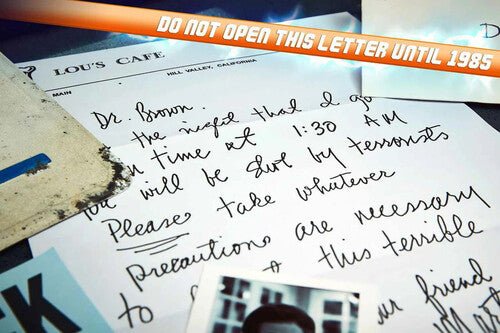 DO NOT OPEN THIS LETTER UNTIL 1985
D
LOU'S CAFE
MAIN
HILL VALLEY, CALIFORNIA
Dr. Brown.
the night that I go
time at 1:30 AM
will be shot by terrorists
Please take whatever
precautions are necessary
to this terrible
friend
K